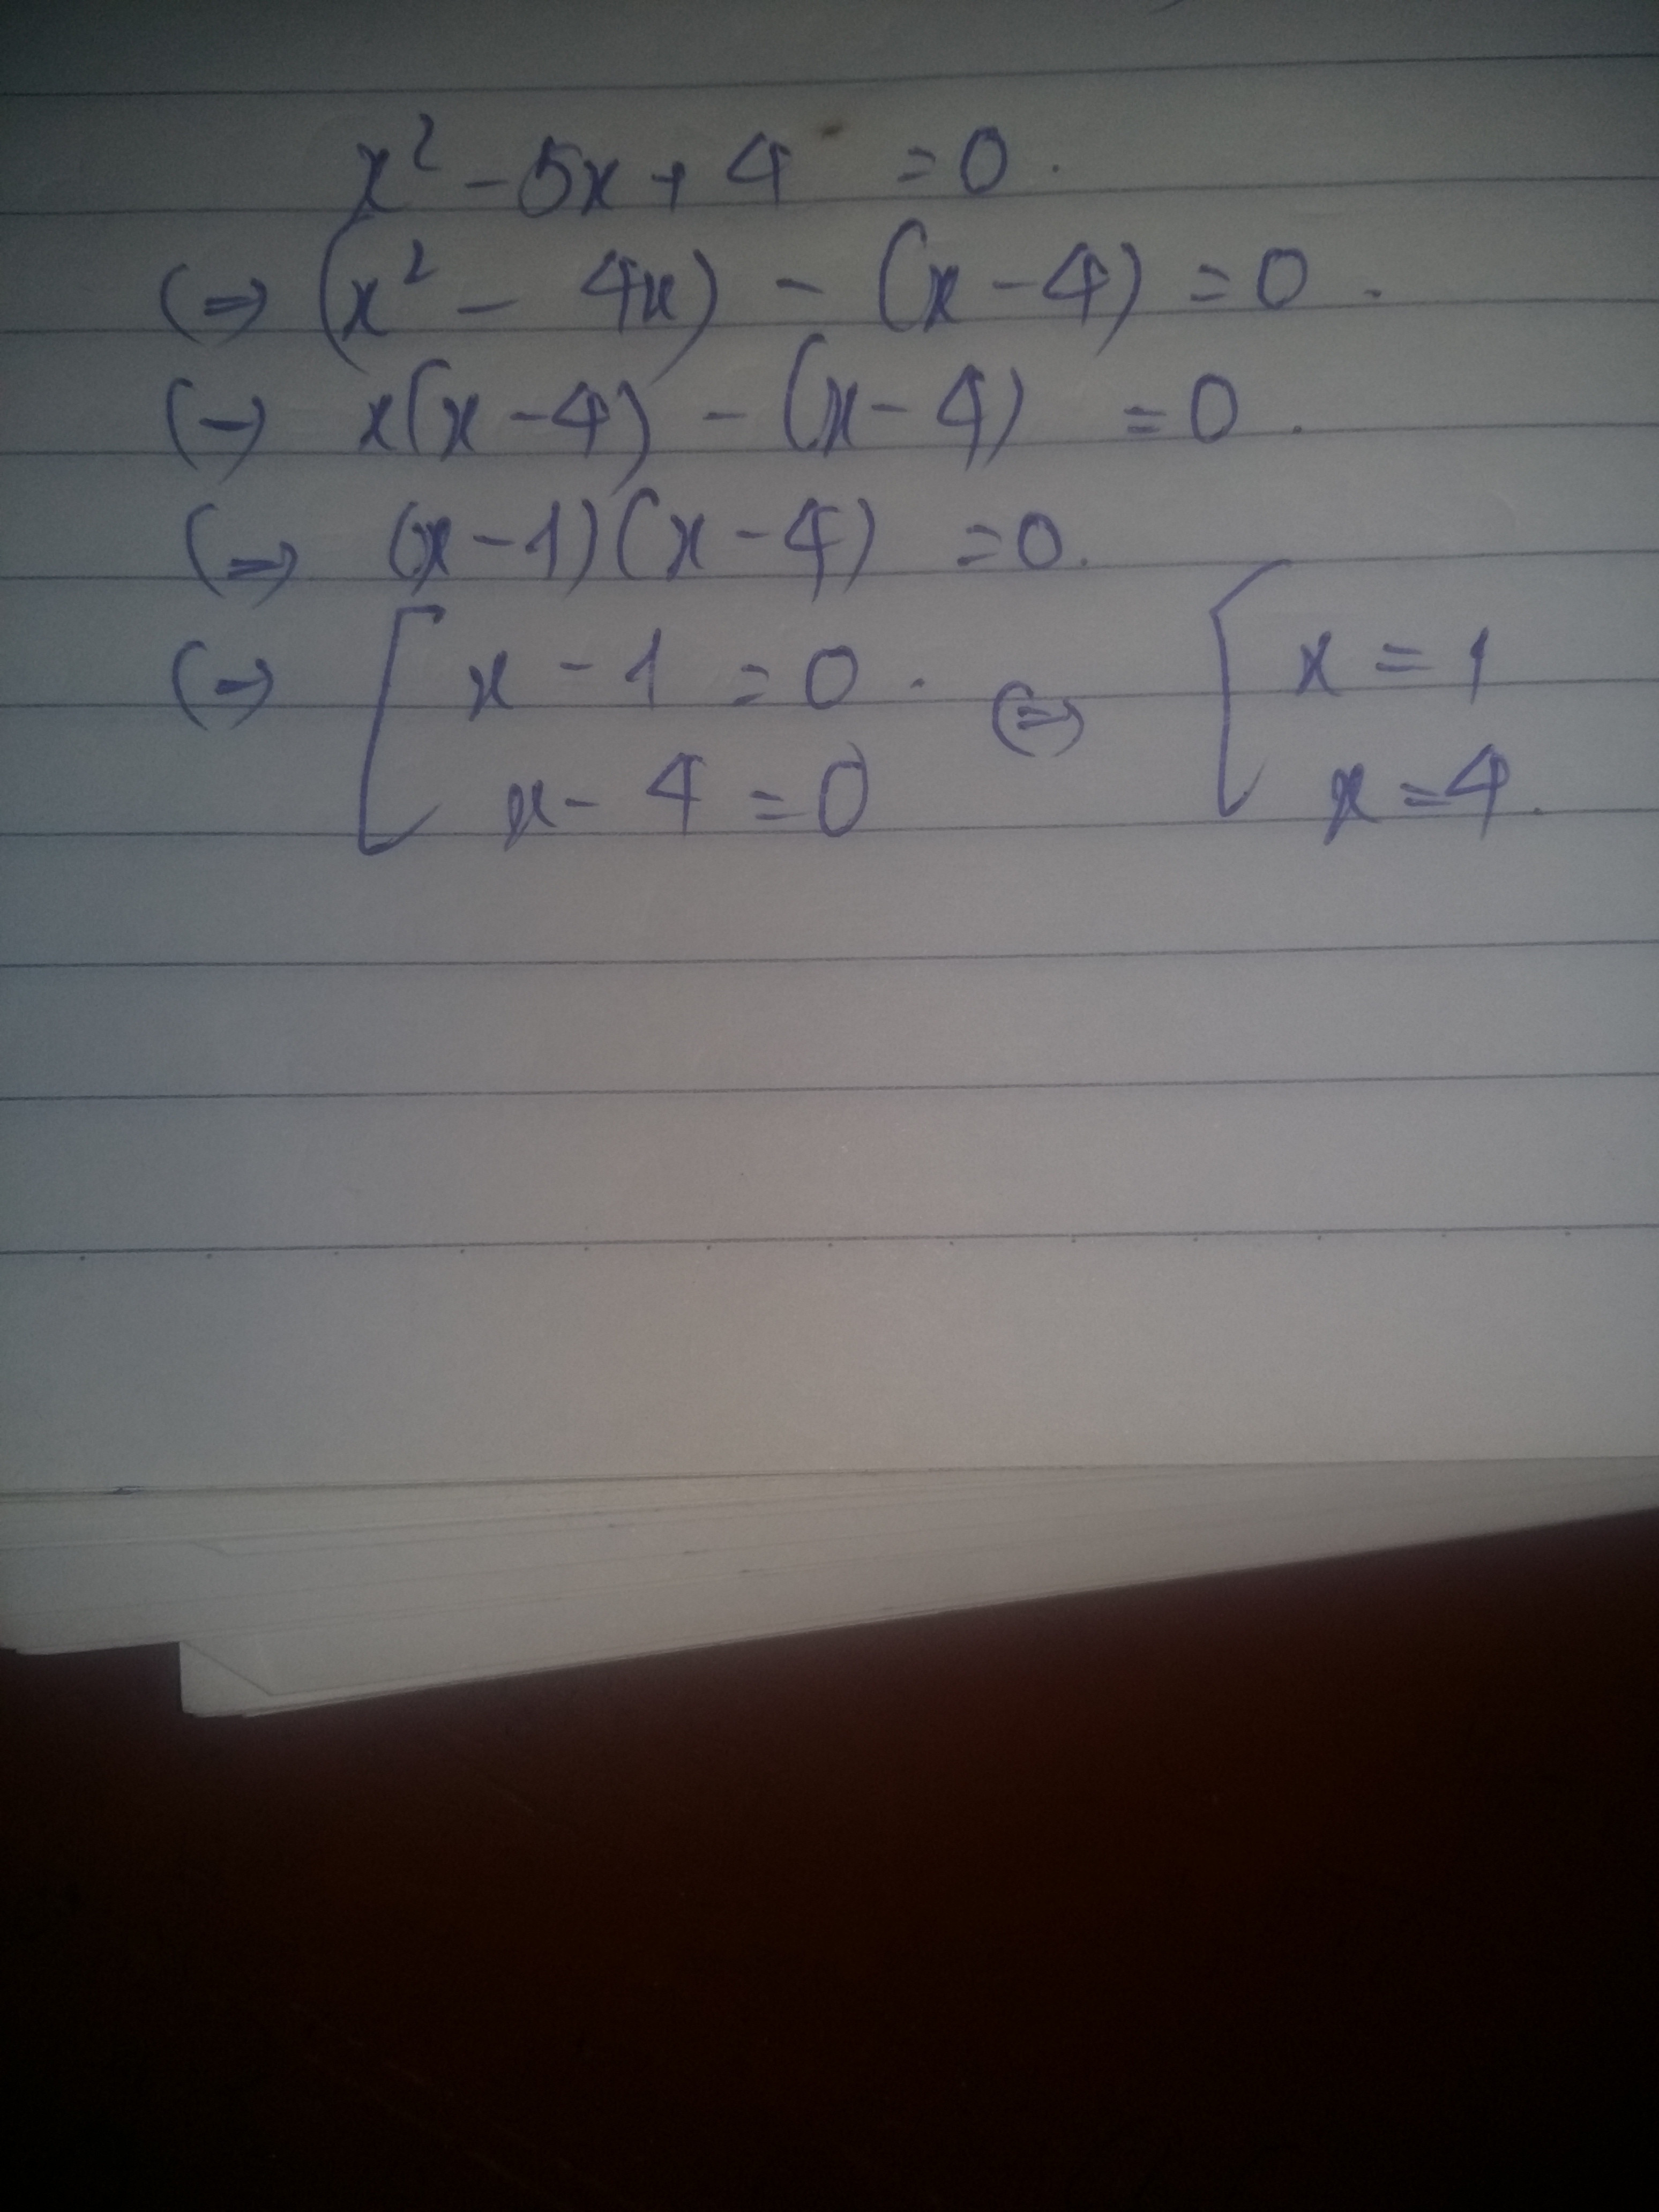 x² - 5x + 4 = 0.
(=> (x² - 4x) - (x - 4) = 0.
(-> x(x - 4) - (x - 4) = 0.
(=> (x - 1)(x - 4) = 0.
(-> [ x - 1 = 0. (=> [ x = 1
x - 4 = 0 x = 4.